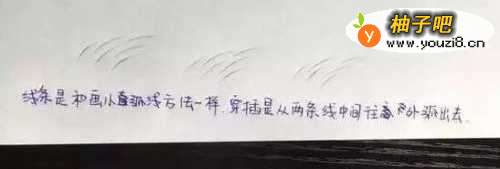 柚子吧
www.youzi8.cn
线条是和画小直弧线方法一样.穿插是从两条线中间往外弧出去.